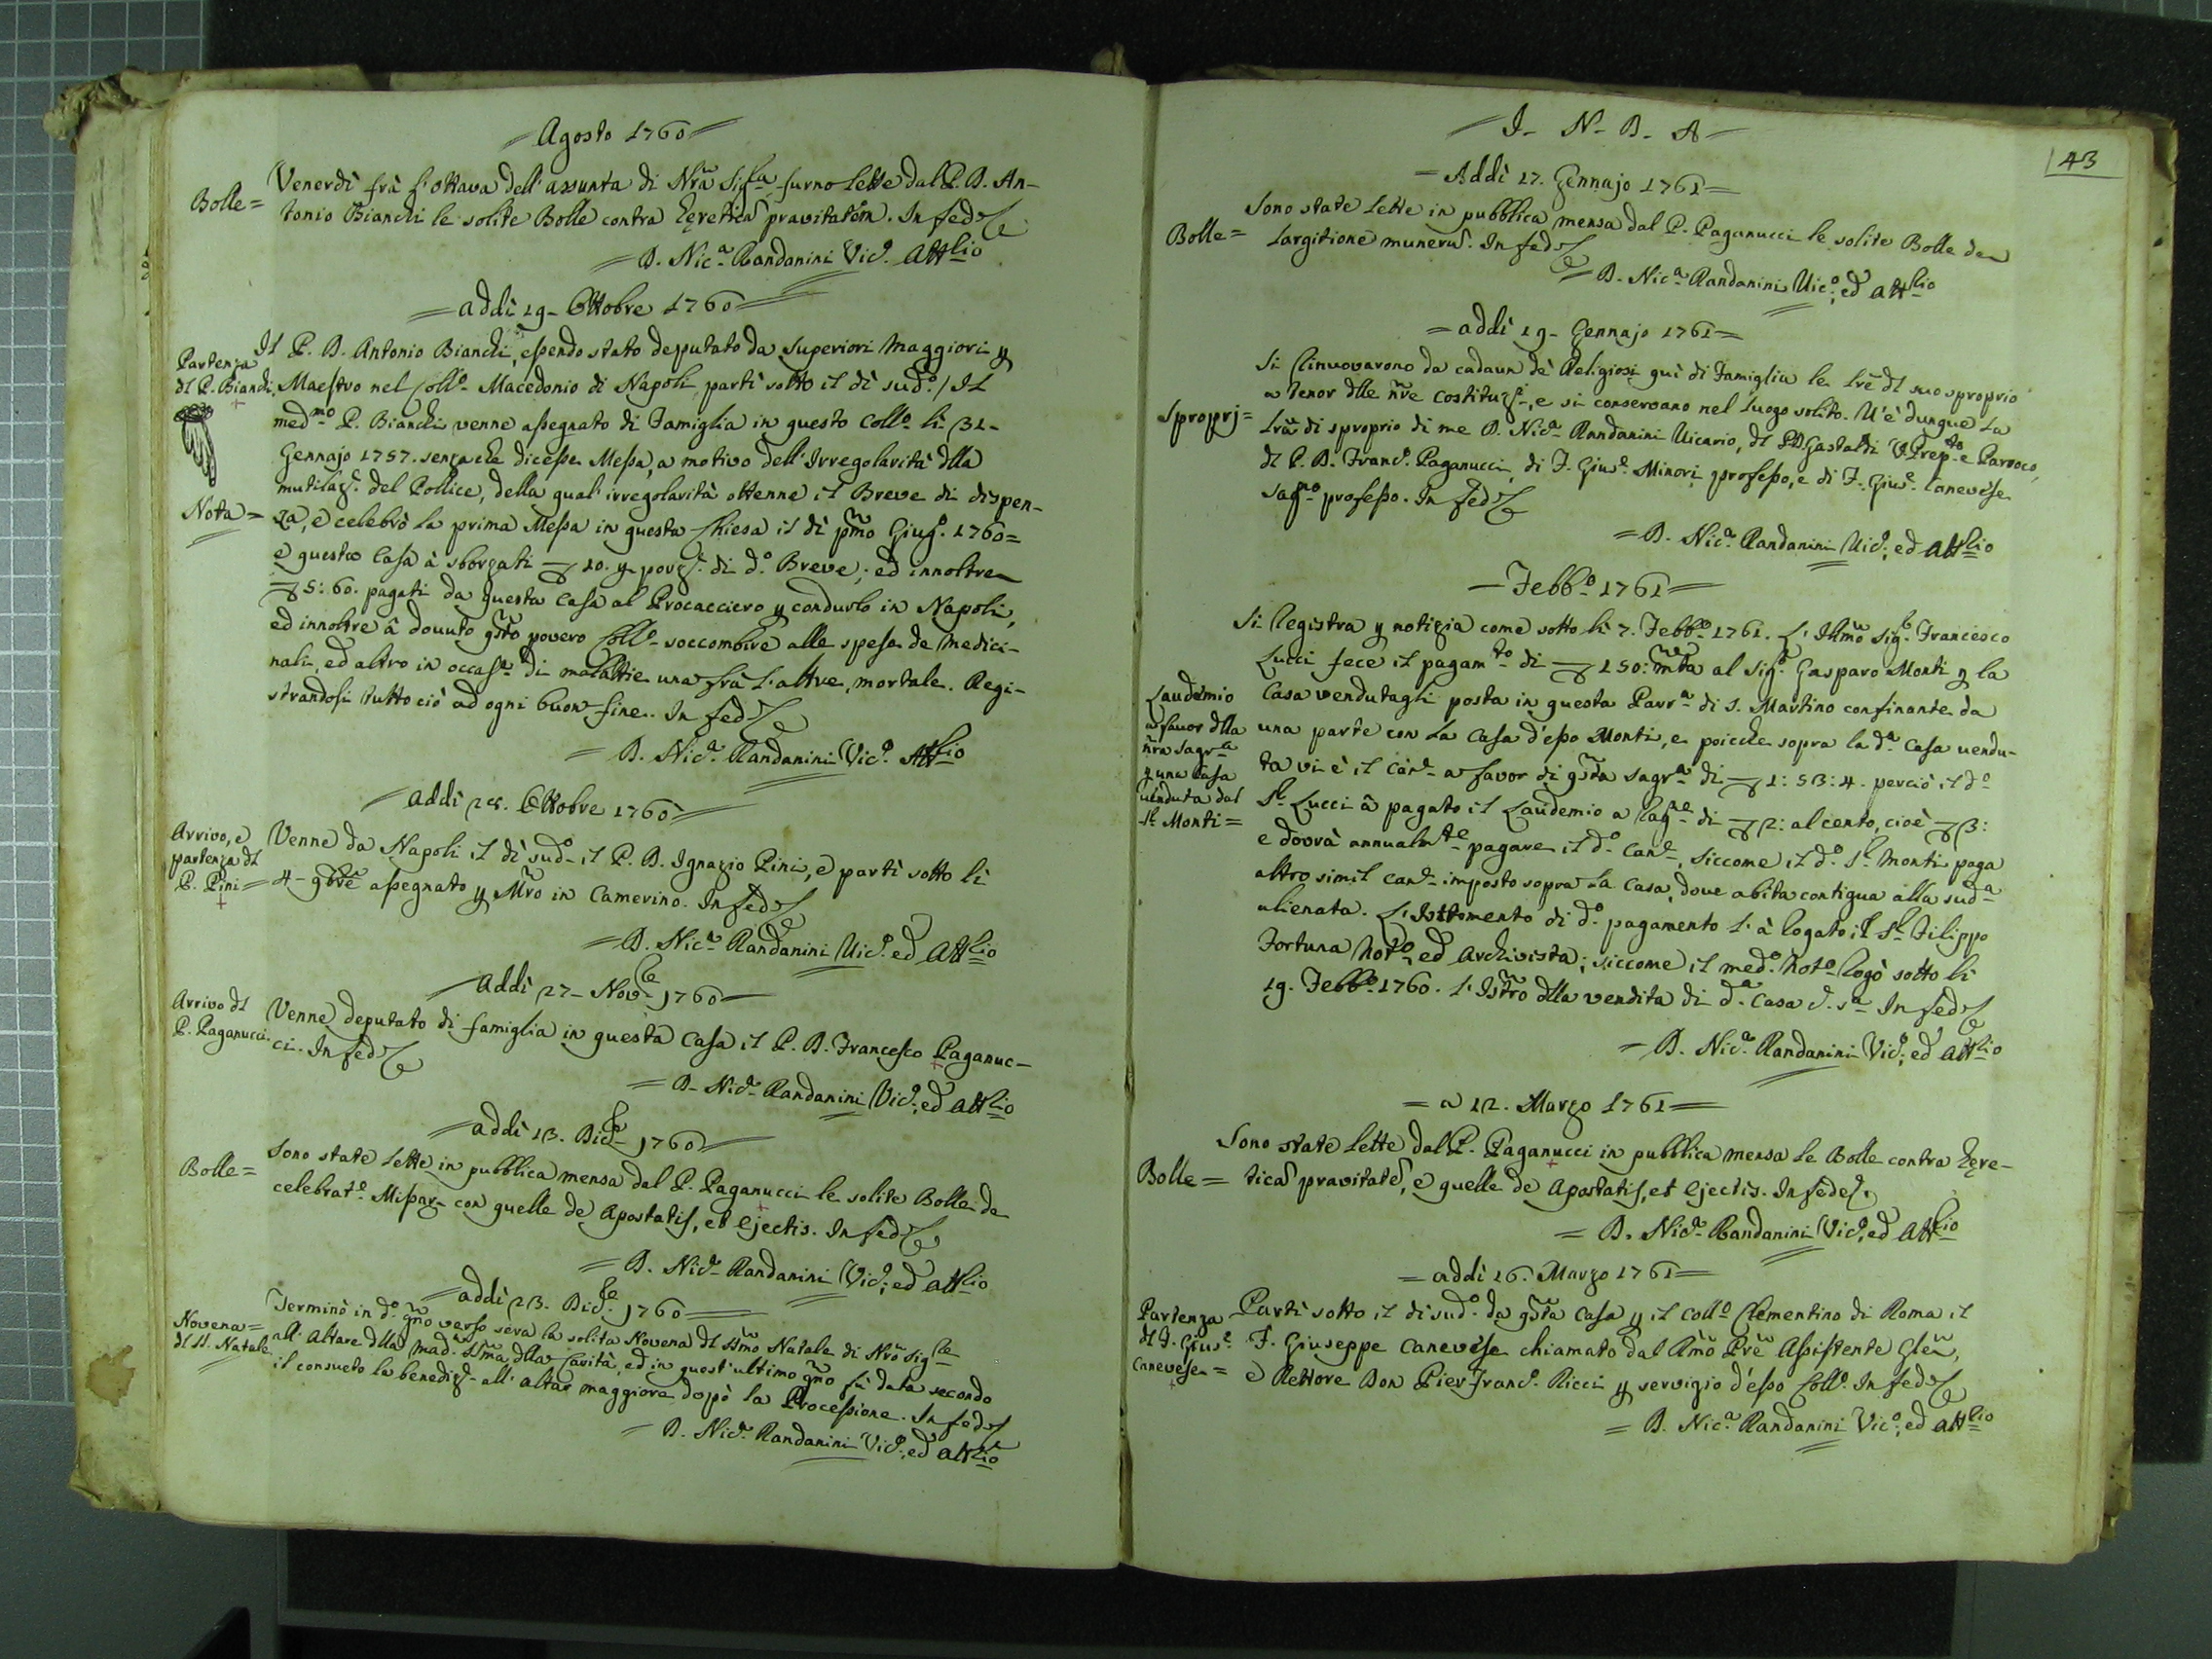 Agosto 1760
Bolle = Venerdì frà l'ottava dell'assunta di Nrã Sigra furno lette dal P. D. An-
tonio Bianchi le solite Bolle contra hęreticã pravitatem. In fede
D. Nica Randanini Vico Attlio
addi 19- Ottobre 1760
Partenza
dl P. Bianchi
Il P. D. Antonio Bianchi, essendo stato deputato da Superiori Maggiori p
Maestro nel Collo Macedonio di Napoli partì sotto il dì sudo / Il
medmo P. Bianchi venne assegnato di Famiglia in questo Collo li 31-
Gennajo 1757. senza che dicesse Messa, a motivo dell'Irregolarità dlla
mutilaze del Pollice, della qual'irregolarità ottenne il Breve di dispen-
Nota = za, e celebrò la prima Messa in questa Chiesa il dì pmo Giugo 1760=
e questa Casa à sborzati 10. p porze di do Breve; ed innoltre
5: 60. pagati da questa Casa al Procacciero p condurlo in Napoli,
ed innoltre à douuto qsto povero Collo soccombere alle spese de medici-
nali, ed altro in occase di malattie una frà l'altre, mortale. Regi-
strandosi tutto ciò ad ogni buon fine. In fede
D. Nica Randanini Vico Attlio
addi 28. Ottobre 1760
Arrivo, e
partenza dl
P. Pini =
Venne da Napoli il dì sudo il P. D. Ignazio Pini, e partì sotto li
4- 9bre assegnato p Mro in Camerino. In fede
D. Nica Randanini Vico ed Attlio
Addi 27- Novbe 1760
Arrivo dl
P. Paganucci
Venne deputato di famiglia in questa Casa il P. D. Francesco Paganuc-
ci. In fede
D- Nica Randanini Vico; ed Attlio
addi 13. Dicbe 1760
Bolle = Sono state lette in pubblica mensa dal P. Paganucci le solite Bolle de
celebrate Missar con quelle de Apostatis, et ejectis. In fede
D. Nica Randanini Vico; ed Attlio
addi 23. Dicbe 1760
Novena =
dl SS. Natale
Terminò in do gno verso sera la solita Novena dl SSmo Natale di Nro Sigre
all'Altare dlla Mada SSma dlla Carità, ed in quest'ultimo gno fù data secondo
il consueto la benedize all'Altar maggiore dopò la Processione. In fede
D. Nica Randanini Vico; ed Attlio
43
I- N- D- A-
Addi 17. Gennajo 1761
Bolle = Sono state lette in pubblica mensa dal P. Paganucci le solite Bolle de
largitione munerũ. In fede
D. Nica Randanini Vico; ed Attlio
addi 19- Gennajo 1761
Si rinuovarono da cadaun dè Religiosi quì di Famiglia le lre dl suo sproprio
a tenor dlle nre costituzi, e si conservano nel luogo solito. V'è dunque la
Sproprj = lra di sproprio di me D. Nica Randanini Vicario, dl P.D. Gastaldi V.Prepto e Parroco,
dl P. D. Franco Paganucci, di F. Giuse Minori professo, e di F. Giuse Canevese
professo. In fede
D. Nica Randanini Vico; ed Attlio
Febbo 1761
Si registra p notizia come sotto li 7. Febbo 1761. L'Illmo Sigr Francesco
Lucci fece il pagamto di 150: mta al Sigr Gasparo Monti p la
Laudemio
a favor dlla
nra Sagra
p una Casa
uenduta dal
Sr Monti =
Casa vendutagli posta in questa Parra di S. Martino confinante da
una parte con la Casa d'esso Monti, e poiche sopra la da Casa uendu-
ta vi è il Cane a favor di qsta Sagra di 1: 53: 4. perciò il do
Sr Lucci à pagato il Laudemio a ragne di 2: al cento, cioè 3:
e dovrà annualmte pagare il do Cane, siccome il do Sr Monti paga
altro simil Cane imposto sopra la Casa, doue abita contigua alla suda
alienata. L'Istromento di do pagamento l'à rogato il Sr Filippo
Fortuna Noto ed Archivista; siccome il medo Noto rogò sotto li
19. Febbo 1760. l'Istro dlla vendita di da Casa In fede
D. Nica Randanini Vico; ed Attlio
a 12. Marzo 1761
Bolle = Sono state lette dal P. Paganucci in pubblica mensa le Bolle contra hęre-
ticã pravitatẽ, e quelle de Apostatis, et ejectis. In fede.
D. Nica Randanini Vico; ed Attlio
addi 16. Marzo 1761
Partenza
dl F. Giuse
Canevese =
Partì sotto il dì sudo da qsta Casa p il Collo Clementino di Roma il
F. Giuseppe Canevese chiamato dal Rmo Pre Assistente Gle,
e Rettore Don Pier Franco Ricci p servigio d'esso Collo. In fede
D. Nica Randanini Vico; ed Attlio